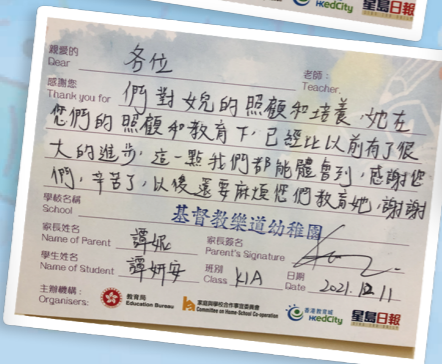 HKEdCity 星島日報
親愛的
Dear 各位 老師：
Teacher,
感謝您
Thank you for 們對女兒的照顧和培養，她在
您們的照顧和教育下，已經比以前有了很
大的進步，這一點我們都能體會到，感謝您
們，辛苦了，以後還要麻煩您們教育她，謝謝
學校名稱
School 基督教樂道幼稚園
家長姓名
Name of Parent 譚妮 家長簽名
Parent's Signature
學生姓名
Name of Student 譚妍安 班別
Class K1A 日期
Date 2021.12.11
主辦機構：
Organisers: 教育局
Education Bureau 家庭與學校合作事宜委員會
Committee on Home-School Co-operation 香港教育城
HKEdCity 星島日報